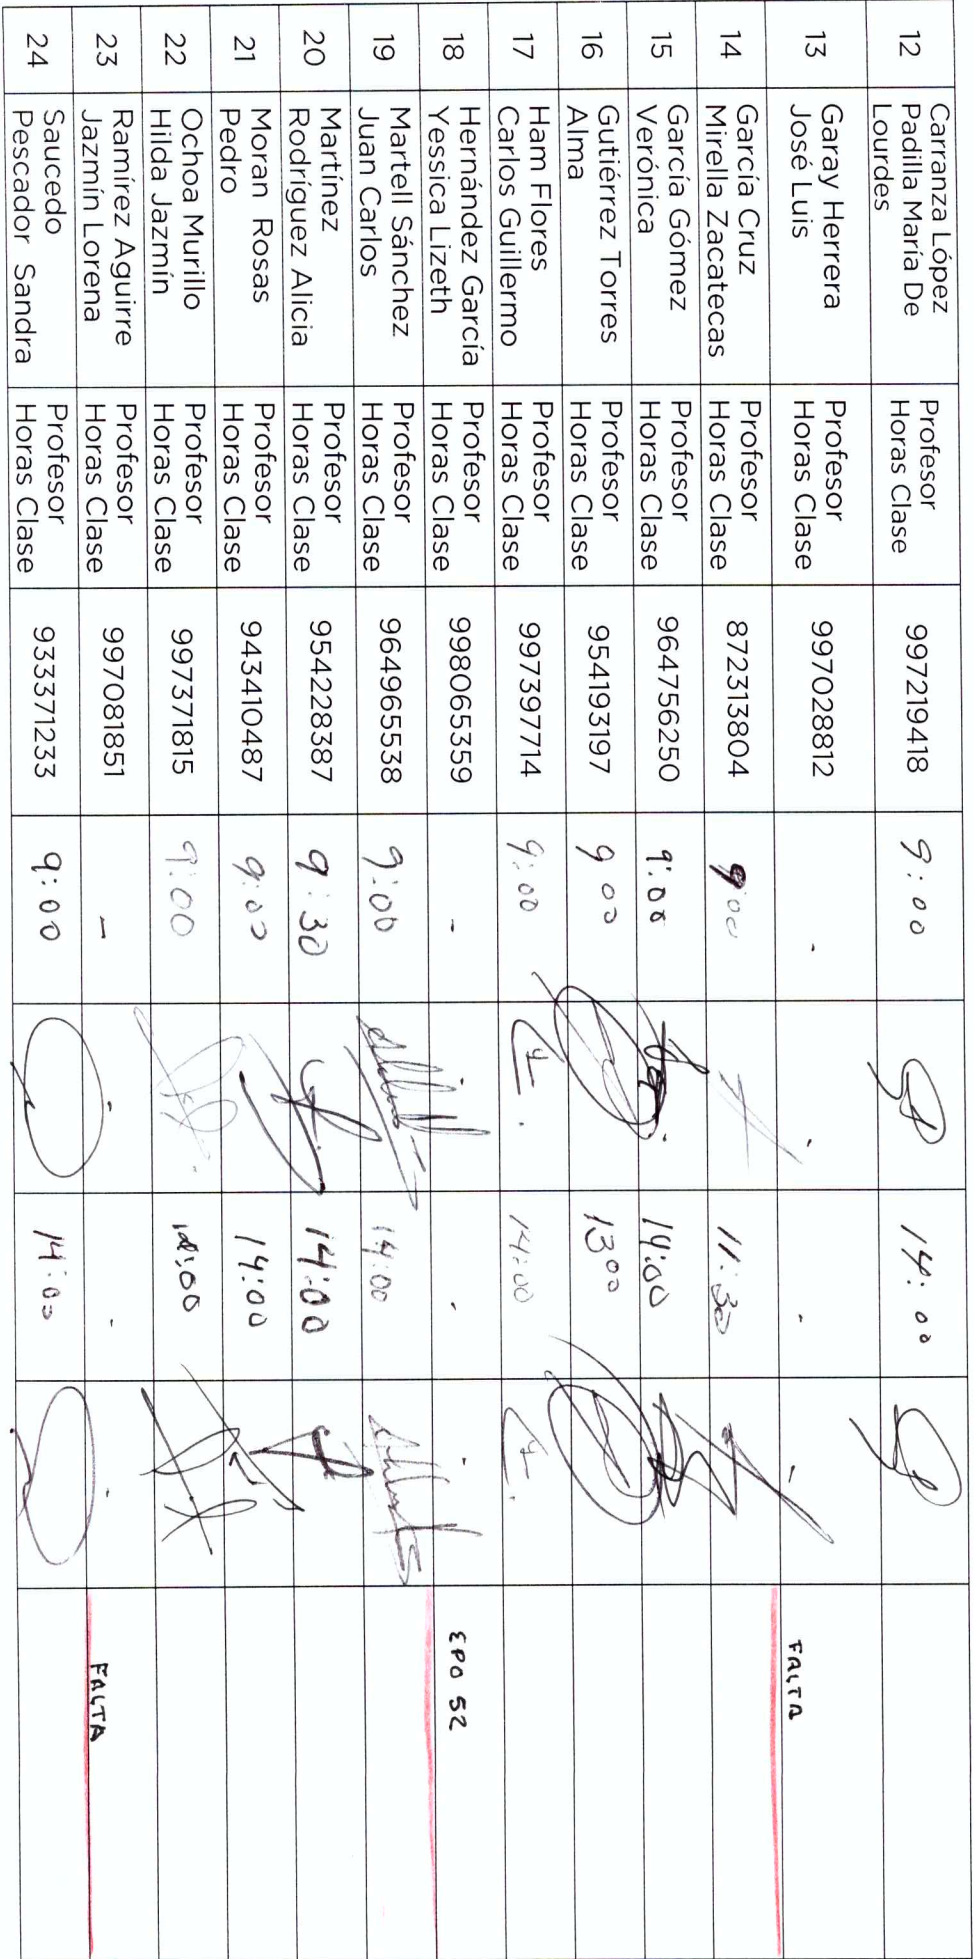 12 Carranza López Padilla María De Lourdes Profesor Horas Clase 997219418 9:00 14:00
13 Garay Herrera José Luis Profesor Horas Clase 997028812 - - - - FALTA
14 García Cruz Mirella Zacatecas Profesor Horas Clase 872313804 9:00 11:30
15 García Gómez Verónica Profesor Horas Clase 964756250 9:00 14:00
16 Gutiérrez Torres Alma Profesor Horas Clase 954193197 9 00 13 00
17 Ham Flores Carlos Guillermo Profesor Horas Clase 997397714 9:00 14:00
18 Hernández García Yessica Lizeth Profesor Horas Clase 998065359 - - - - EPO 52
19 Martell Sánchez Juan Carlos Profesor Horas Clase 964965538 9:00 14:00
20 Martínez Rodríguez Alicia Profesor Horas Clase 954228387 9:30 14:00
21 Moran Rosas Pedro Profesor Horas Clase 943410487 9:00 14:00
22 Ochoa Murillo Hilda Jazmín Profesor Horas Clase 997371815 9:00
23 Ramírez Aguirre Jazmín Lorena Profesor Horas Clase 997081851 - - - - FALTA
24 Saucedo Pescador Sandra Profesor Horas Clase 933371233 9:00 14:00